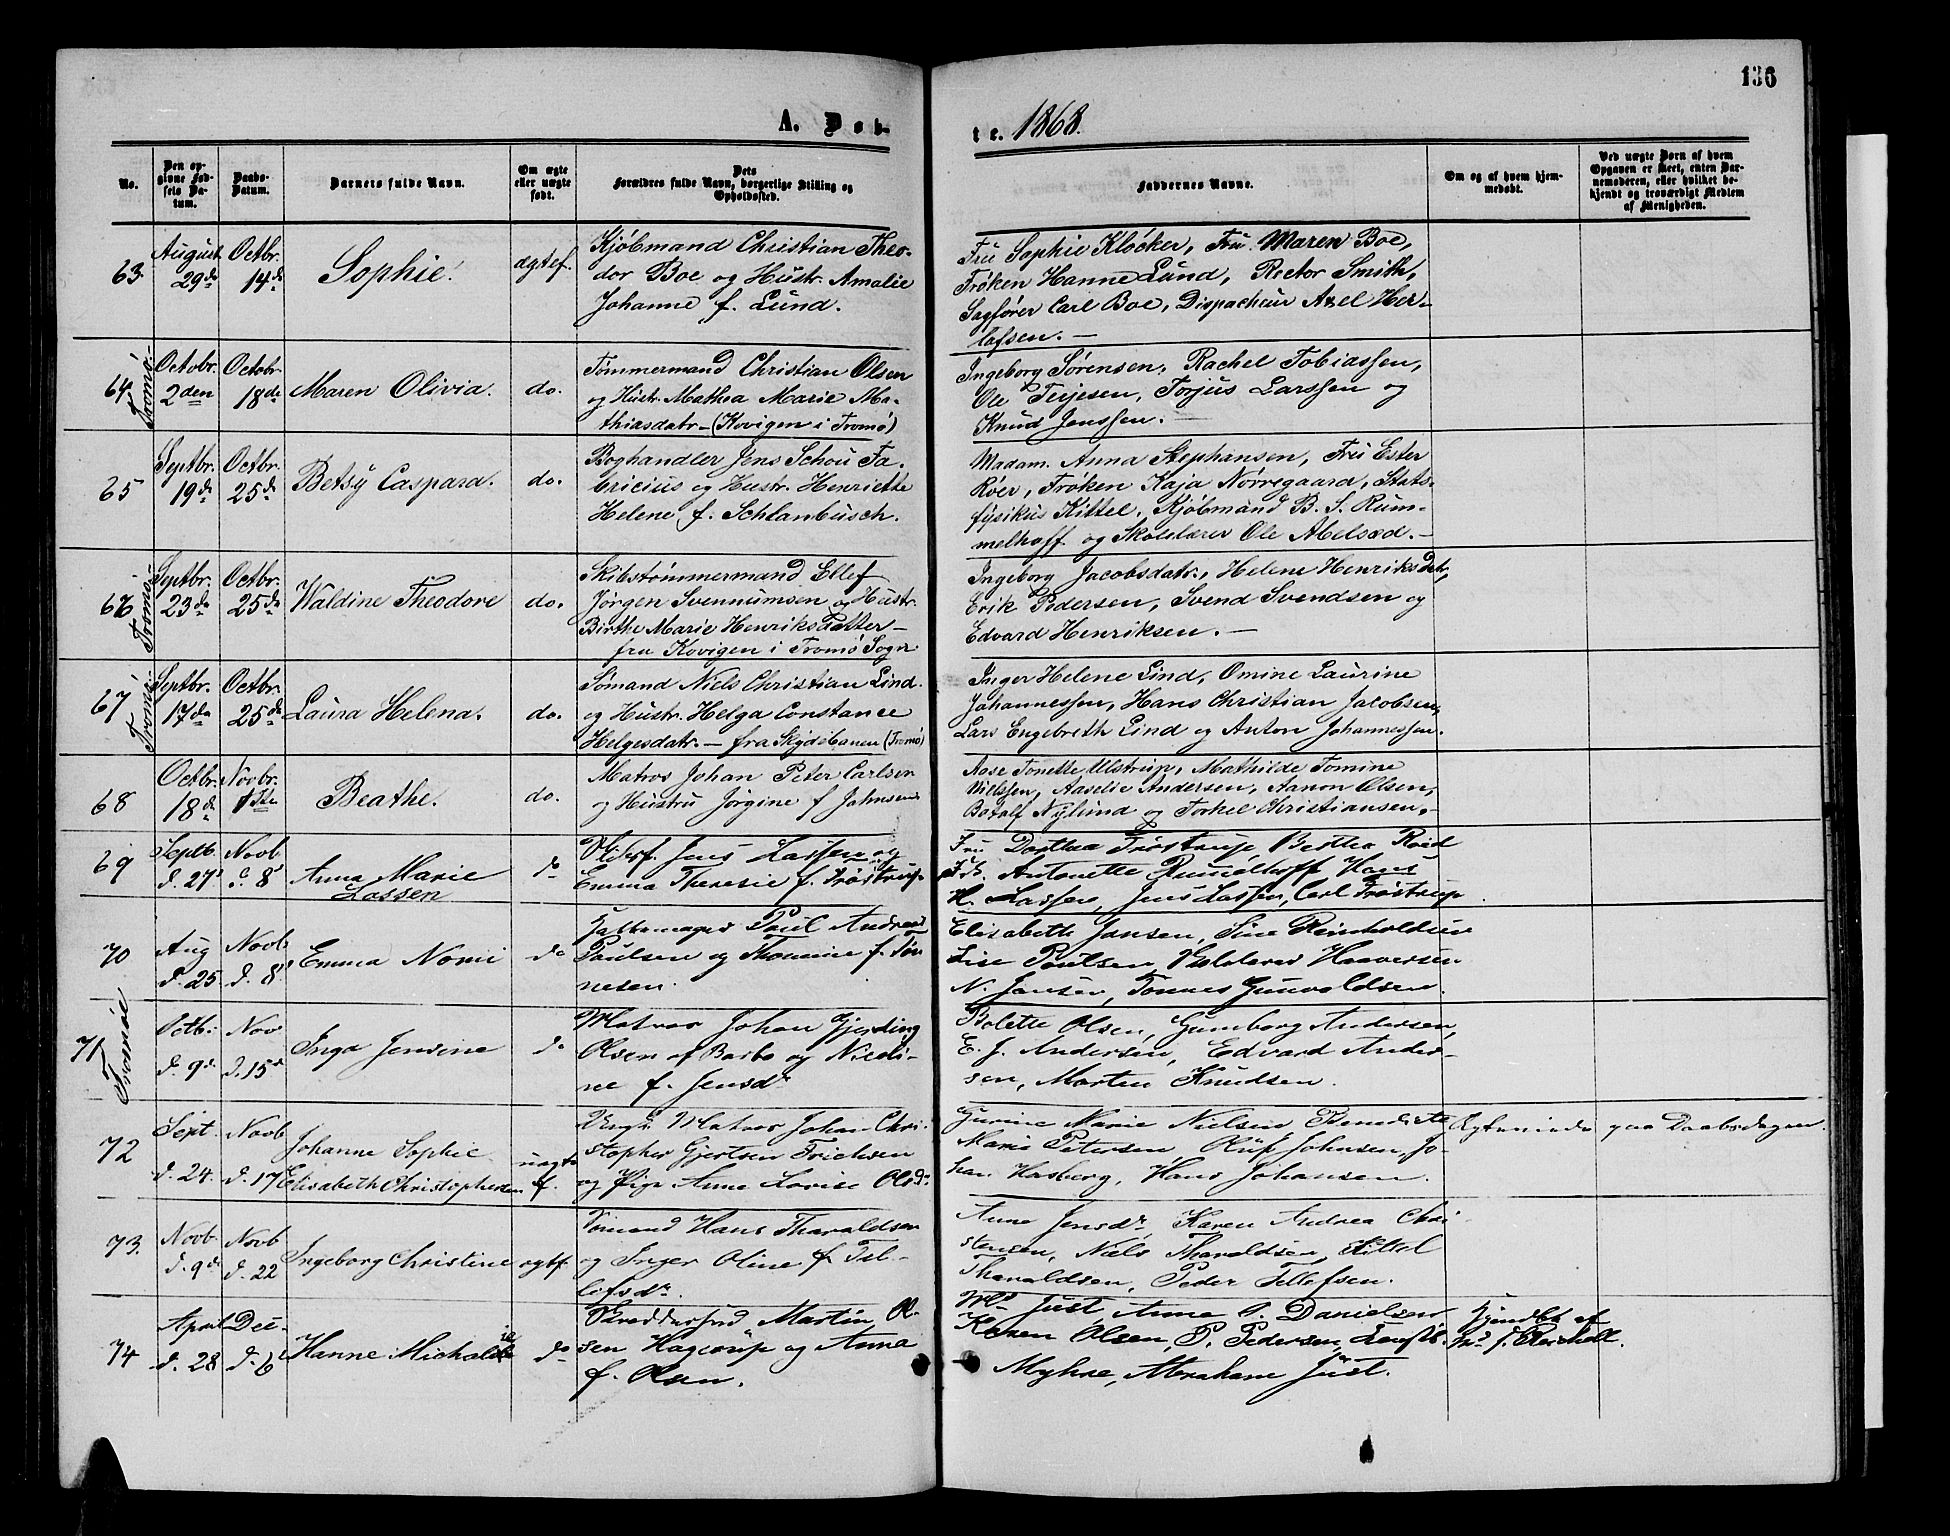 136
A. Døb-
te. 1868.
No.
Den op-
givne Fød-
sels Da-
tum.
Daabs-
Datum.
Barnets fulde Navn.
Om ægte
eller uægte
født.
Dets
Forældres fulde Navn, borgerlige Stilling og
Opholdssted.
Faddernes Navne.
Om og af hvem hjem-
medøbt.
Ved uægte Børn af hvem
Opgaven er skeet, enten Bar-
nemoderen, eller hvilket be-
kjendt og troværdigt Medlem
af Menigheden.
63.
August
29de
Octbr.
14de
Sophie.
ægtef.
Kjøbmand Christian Theo-
dor Boe og Hustr. Amalie
Johanne f. Lund.
Fru Sophie Kløcker, Fru Maren Boe,
Frøken Hanne Lund, Rector Smith,
Sagfører Carl Boe, Dispacheur Axel Her-
lofsen.
64
Tromø.
Octobr.
2den
Octobr.
18de
Maren Olivia.
do.
Tømmermand Christian Olsen
og Hustr. Mathea Marie Ma-
thiasdatr. (Kovigen i Tromø)
Ingeborg Sørensen, Rachel Tobiassen,
Ole Terjesen, Torjus Larssen og
Knud Jenssen.
65
Septbr.
19de
Octbr.
25de
Betsy Caspara.
do.
Boghandler Jens Schou Fa-
bricius og Hustr. Henriette
Helene f. Schlanbusch.
Madam. Anna Stephansen, Fru Ester
Røer, Frøken Kaja Nørregaard, Stats-
fysikus Kittel, Kjøbmand B. S. Rum-
melhoff og Skolelærer Ole Abelsæd.
66
Tromø.
Septbr.
23de
Octbr.
25de
Waldine Theodore
do.
Skibstømmermand Ellef
Jørgen Svennumsen og Hustr.
Birthe Marie Henriksdatter
fra Kovigen i Tromø Sogn
Ingeborg Jacobsdatr., Helene Henriksdatr,
Erik Pedersen, Svend Svendsen og
Edvard Henriksen.
67
Tromø.
Septbr.
17de
Octbr.
25de
Laura Helena.
do.
Sømand Niels Christian Lind.
og Hustr. Helga Constance
Helgesdatr. fra Skydebanen (Tromø)
Inger Helene Lind, Omine Laurine
Johannessen, Hans Christian Jacobsen,
Lars Engebreth Lind og Anton Johannessen.
68
Octbr.
18de
Novbr.
1ste
Beathe.
do.
Matros Johan Peter Carlsen
og Hustru Jørgine f Jahnsen
Aase Tonette Ulstrup, Mathilde Tomine
Nielssen, Aaselie Andersen, Aanon Olsen,
Botolf Nylund og Torkel Christiansen.
69
Septb.
d. 27
Novb
d. 8
Anna Marie
Lassen
do
Jens Lassen og
Emma Theresie f. Trøstrup
Fru Dorthea Trøstrup Berthea Roed
Antonette Rumelhoff Hans
H. Lassen, Jens Lassen, Carl Trøstrup
70
Aug
d. 25
Novb.
d. 8
Emma Nomi
do
Paul Andreas
Paulsen og Thomine f. Tøn-
nesen.
Elisabeth Jansen, Sine Reinholdsen
Lise Paulsen, Haaversen
N. Jansen, Tønnes Gunvaldsen.
71
Tromøe
Octb.
d. 9de
Nov
d. 15de
Inga Jensine
do
Matros Johan Gjerding
Olsen af Barbo og Nicoli-
ne f. Jensdr
Bolette Olsen, Gunborg Andersen,
E. J. Andersen, Edvard Ander-
sen, Morten Knudsen.
72
Sept.
d. 24.
Novb
d. 17
Johanne Sophie
Elisabeth Christophersen
uægte
f.
Ungk. Matros Johan Chri-
stopher Gjertsen Erichsen
og Pige Anne Lovise Olsdr
Gurine Marie Nielsen Benedicte
Marie Petersen Oluf Johnsen, Jo-
han Hasberg, Hans Johansen.
paa Daabsdagen.
73.
Novb
d. 9de
Novb
d. 22
Ingeborg Christine
ægtf.
Sømand Hans Tharaldsen
og Inger Oline f. Tel-
lefsdr.
Anne Jensdr, Karen Andrea Chri-
stensen, Niels Tharaldsen, Kittel
Tharaldsen, Peder Tellefsen.
74
April
d. 28
Dec.
d. 6
Hanne
do
Skreddersvd Martin Ol-
sen Hagerup og Anne
f. Olsen.
Md Just, Anne C. Danielsen,
Karen Olsen, P. Pedersen,
Myhre, Abraham Just.
Gjendbt af